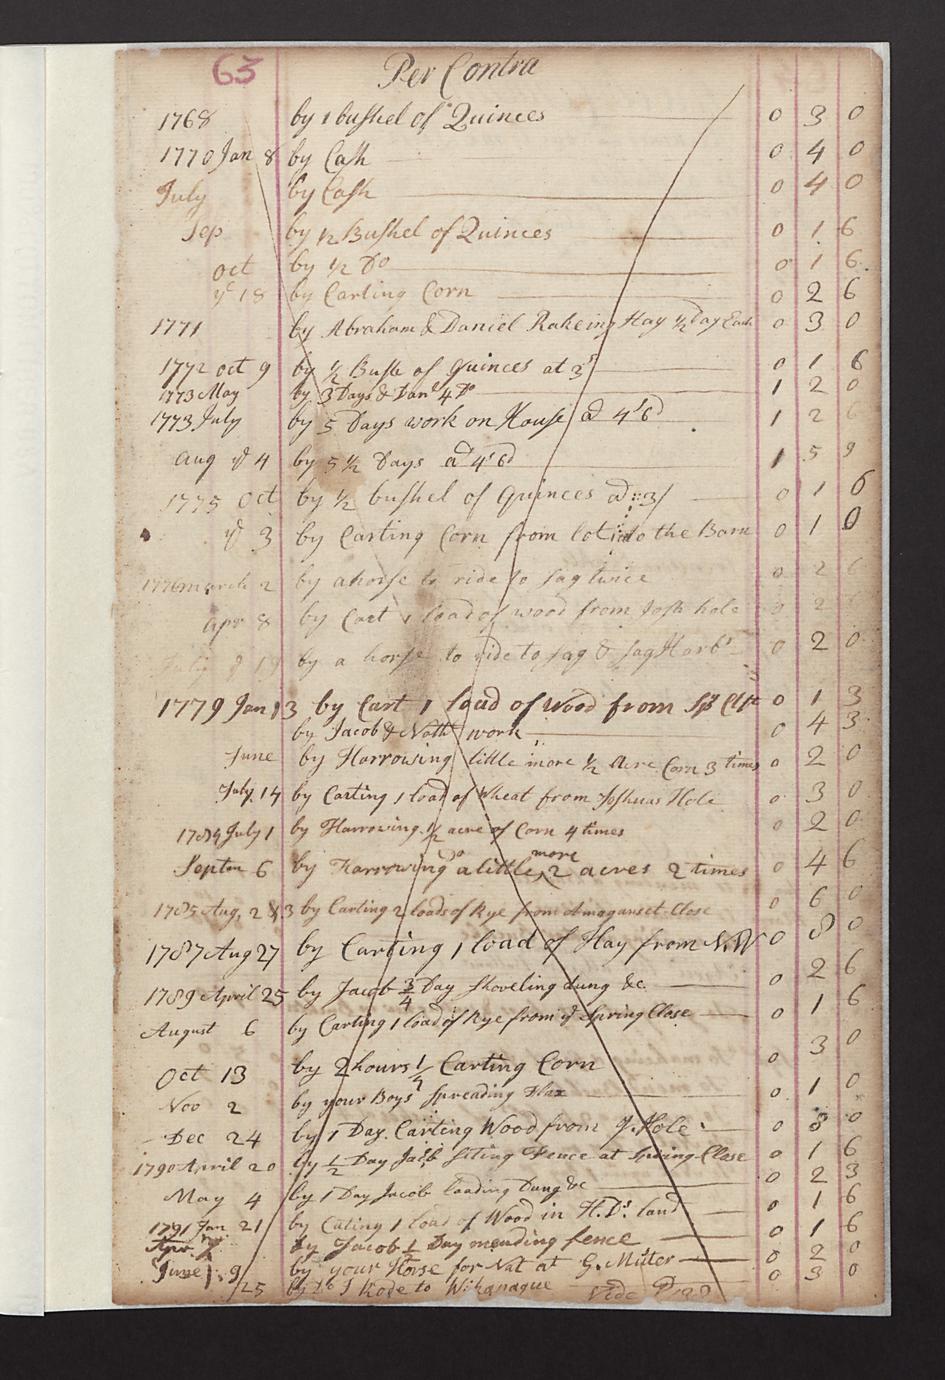 63 Per Contra
1768 by 1 bushel of Quinces 0 3 0
1770 Jan 8 by Cash 0 4 0
July by Cash 0 4 0
Sep by 1/2 Bushel of Quinces 0 1 6
oct by 1/2 Do 0 1 6
ye 18 by Carting Corn 0 2 6
1771 by Abraham & Daniel Rakeing Hay 1/2 Day Each 0 3 0
1772 oct 9 by 1/2 Bush of Quinces at 3s 0 1 6
1773 May by 3 Days & Danl 4 Do 1 2 0
1773 July by 5 Days work on House @ 4s 6d 1 2 6
Aug ye 4 by 5 1/2 Days @ 4s 6d 1 5 9
1775 Oct by 1/2 bushel of Quinces @ 3/ 0 1 6
ye 3 by Carting Corn from lot to the Barn 0 1 0
1776 march 2 by a horse to ride to Sag twice 0 2 6
Apr 8 by Cart 1 load of wood from Josh hole 0 2
July ye 19 by a horse to ride to Sag & Sag Harbr 0 2 0
1779 Jan 13 by Cart 1 load of Wood from 0 1 3
by Jacob & Nath work 0 4 3
June by Harrowing little more 1/2 Acre Corn 3 times 0 2 0
July 14 by Carting 1 load of Wheat from Joshuas Hole 0 3 0
1784 July 1 by Harrowing 1/2 acre of Corn 4 times 0 2 0
Septm 6 by Harrowing Do a little more 2 acres 2 times 0 4 6
1785 Aug 2 & 3 by Carting 2 loads of Rye from Amaganset Close 0 6 0
1787 Aug 27 by Carting 1 load of Hay from N.W 0 8 0
1789 April 25 by Jacob 3/4 Day Shoveling dung &c 0 2 6
August 6 by Carting 1 load of Rye from ye Spring Close 0 1 6
Oct 13 by 2 hours 1/4 Carting Corn 0 3 0
Nov 2 by your Boys Spreading Flax 0 1 0
Dec 24 by 1 Day Carting Wood from J. Hole 0 8 0
1790 April 20 by 1/2 Day Jacb Siting Fence at Spring Close 0 1 6
May 4 by 1 Day Jacob loading Dung &c 0 2 3
1791 Jan 21 by Cating 1 load of Wood in H. Ds. land 0 1 6
Apr. 7 by Jacob 1/2 Day mending fence 0 1 6
June 9 by your Horse for Nat at G. Miller 0 2 0
25 by Do I Rode to Wikapague 0 3 0
Vide